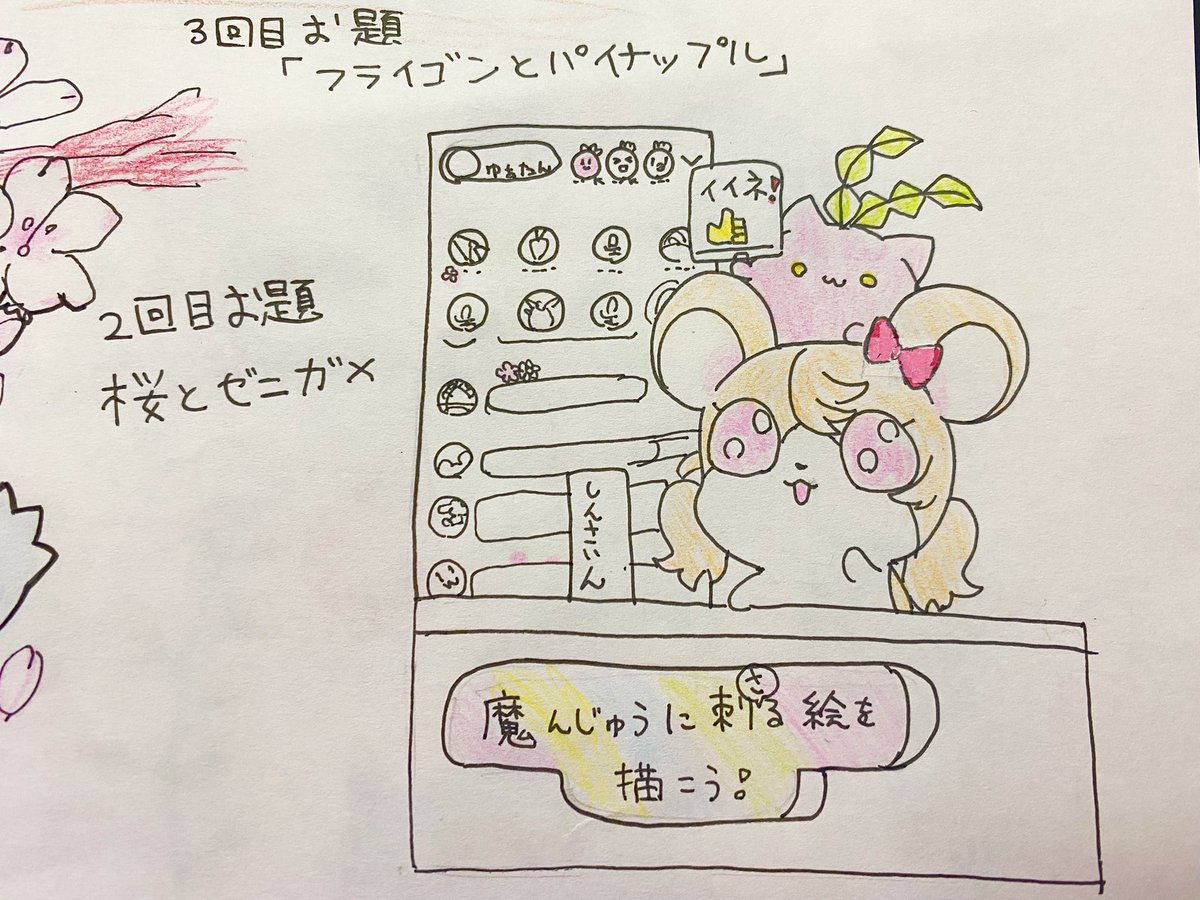 3回目お題
「フライゴンとパイナップル」
ゆぁたん
イイネ!
2回目お題
桜とゼニガメ
しんさいん
魔んじゅうに刺さる絵を
描こう!